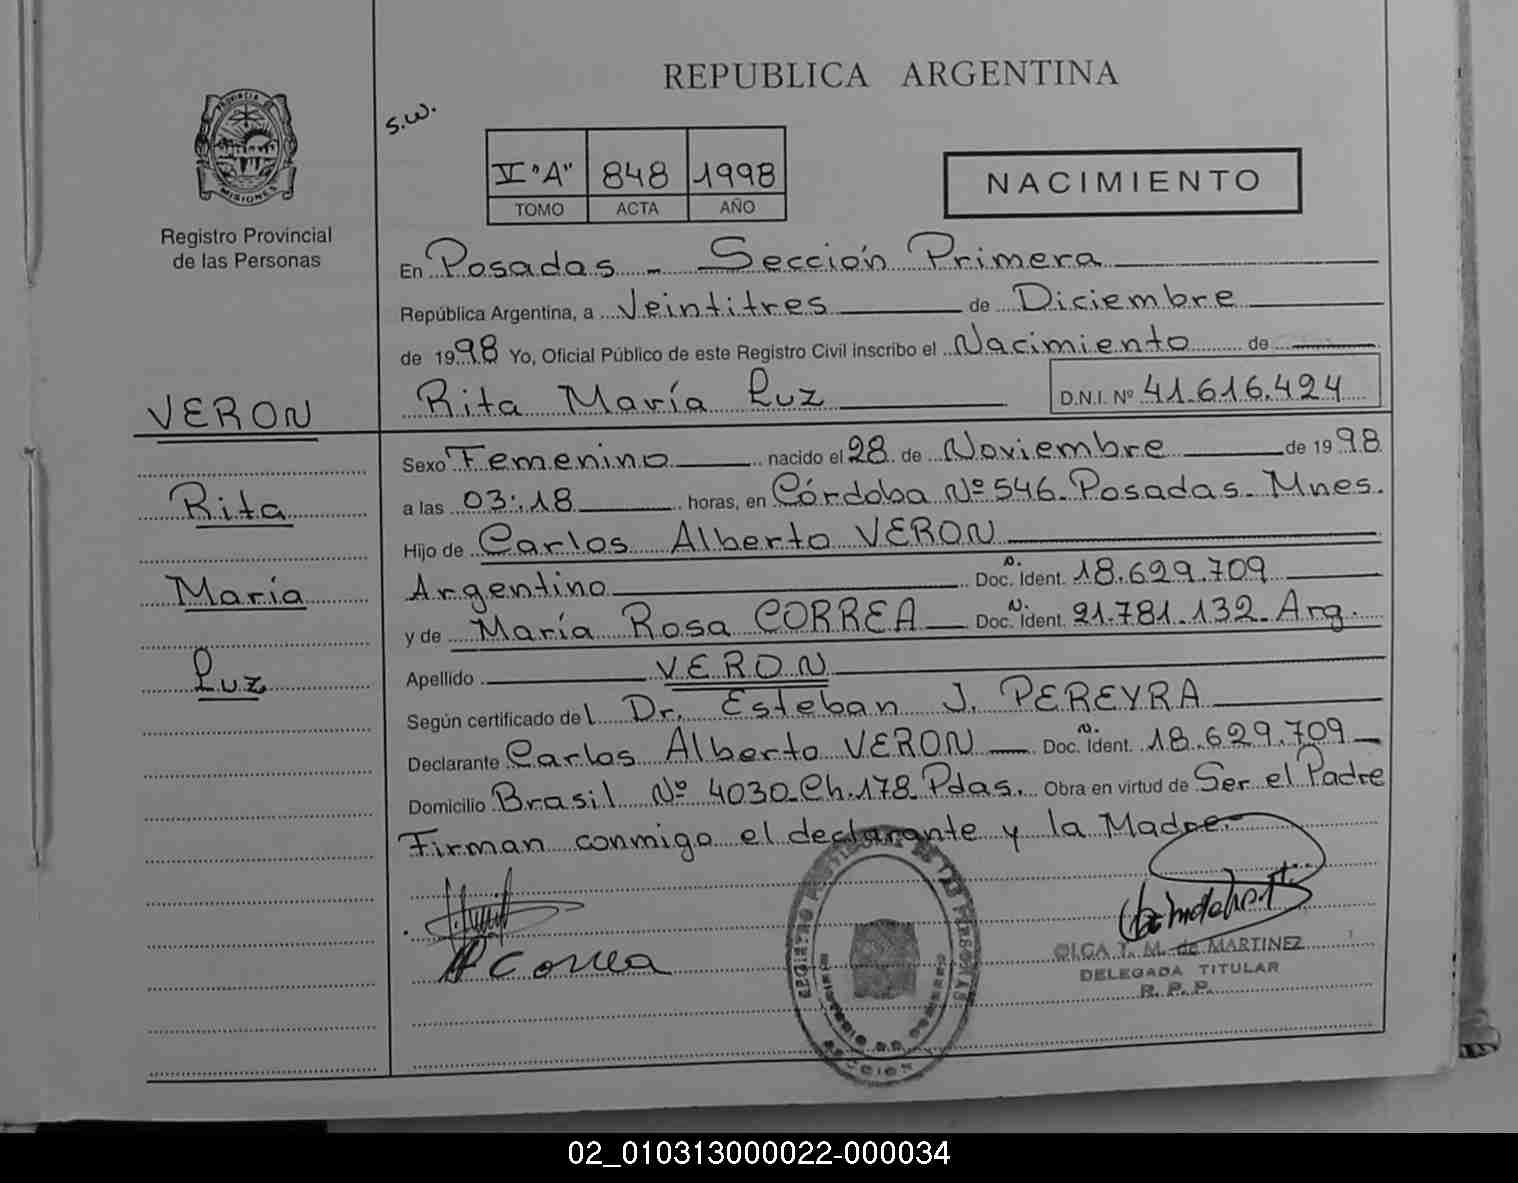 REPUBLICA ARGENTINA
S.W.
PROVINCIA DE
MISIONES
Registro Provincial
de las Personas
V "A" 848 1998
TOMO ACTA AÑO
NACIMIENTO
En Posadas - Sección Primera
República Argentina, a Veintitres de Diciembre
de 1998 Yo, Oficial Público de este Registro Civil inscribo el Nacimiento de
Rita María Luz D.N.I. Nº 41.616.424
VERON
Rita
María
Luz
Sexo Femenino nacido el 28 de Noviembre de 1998
a las 03:18 horas, en Córdoba Nº 546. Posadas. Mnes.
Hijo de Carlos Alberto VERON
Argentino Doc. N. Ident. 18.629.709
y de María Rosa CORREA Doc. N. Ident. 21.781.132 Arg.
Apellido VERON
Según certificado del Dr. Esteban J. PEREYRA
Declarante Carlos Alberto VERON Doc. N. Ident. 18.629.709
Domicilio Brasil Nº 4030 Ch. 178 Pdas. Obra en virtud de Ser el Padre
Firman conmigo el declarante y la Madre.
Correa
REGISTRO PROVINCIAL DE LAS PERSONAS
MINISTERIO DE GOBIERNO
OLGA T. M. de MARTINEZ
DELEGADA TITULAR
R. P. P.
02_010313000022-000034